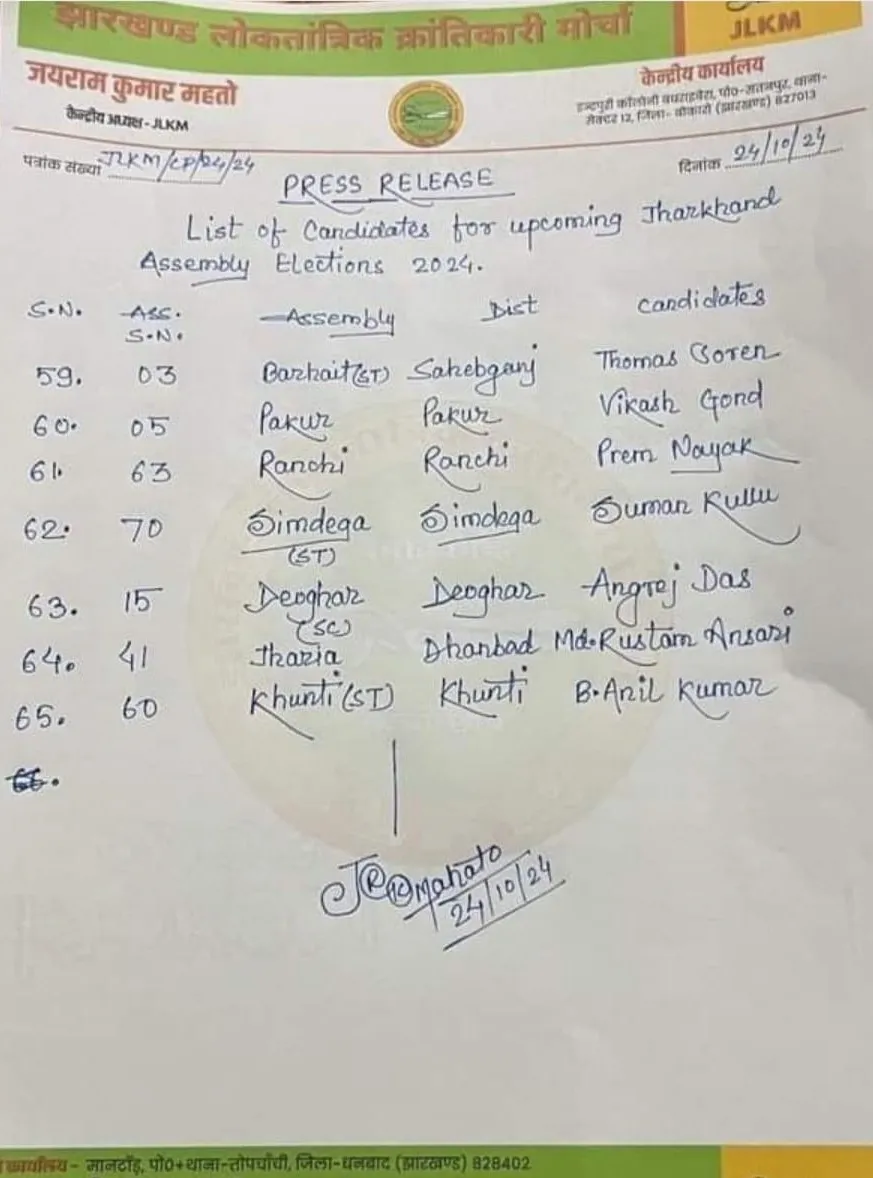 झारखण्ड लोकतांत्रिक क्रांतिकारी मोर्चा
JLKM
जयराम कुमार महतो
केन्द्रीय अध्यक्ष - JLKM
केन्द्रीय कार्यालय
कॉलोनी पो०-सतनपुर, थाना-
सेक्टर 12, जिला- बोकारो (झारखण्ड) 827013
पत्रांक संख्या JLKM/CP/24/24
दिनांक 24/10/24
PRESS RELEASE
List of Candidates for upcoming Jharkhand
Assembly Elections 2024.
S.N. Ass. S.N. Assembly Dist candidates
59. 03 Barhait (ST) Sahebganj Thomas Soren
60. 05 Pakur Pakur Vikash Gond
61. 63 Ranchi Ranchi Prem Nayak
62. 70 Simdega (ST) Simdega Suman Kullu
63. 15 Deoghar (SC) Deoghar Angrej Das
64. 41 Jharia Dhanbad Md. Rustam Ansari
65. 60 Khunti (ST) Khunti B. Anil Kumar
Mahato
24/10/24
कार्यालय - मानटाँड़, पो०+थाना-तोपचाँची, जिला-धनबाद (झारखण्ड) 828402